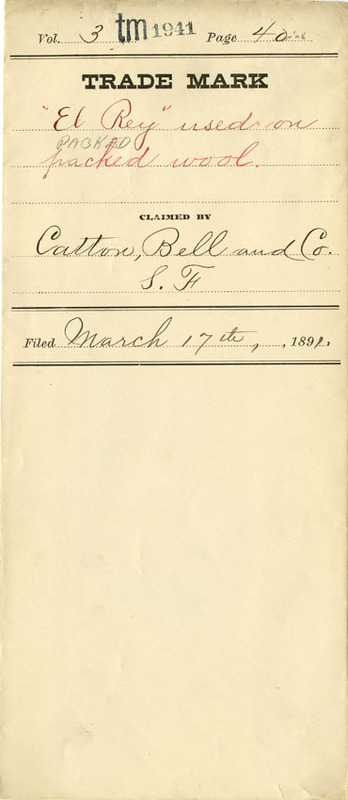 Vol. 3 tm 1941 Page 40
TRADE MARK
"El Rey" used on
PACKAD
packed wool.
CLAIMED BY
Catton, Bell and Co.
S. F
Filed March 17th, , 1891,